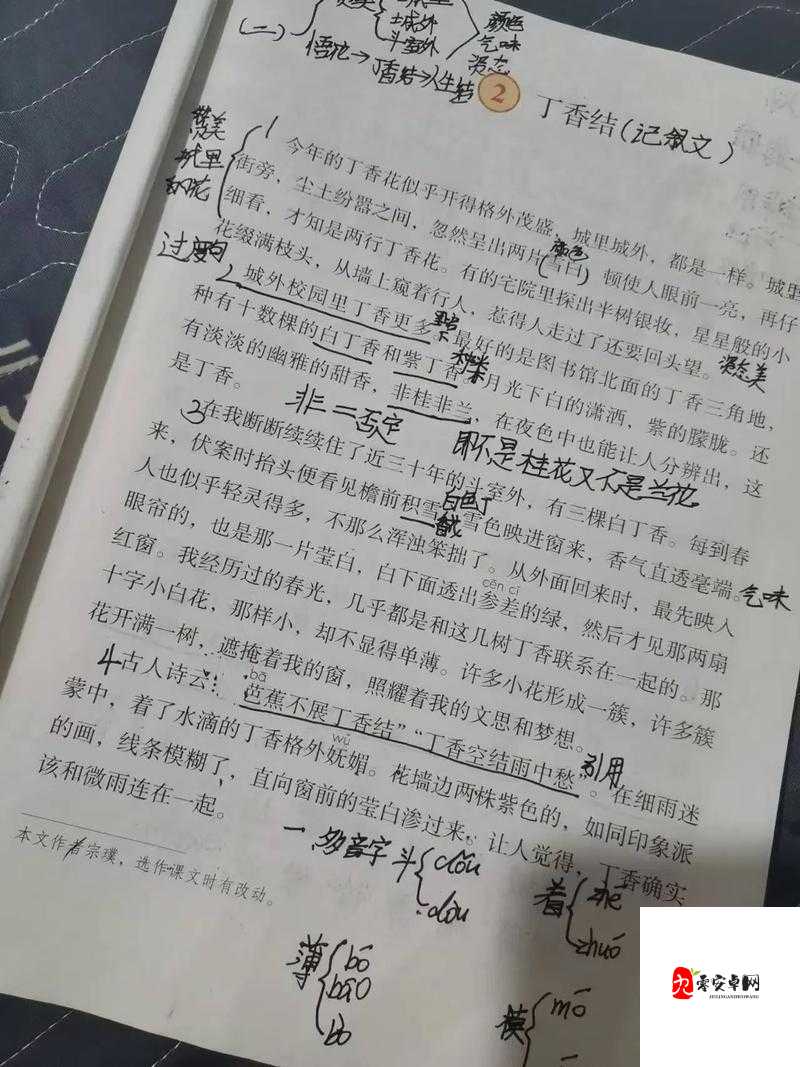 (二)
土城外
斗室外
颜色
气味
姿态
悟花→丁香结→人生结
2 丁香结(记叙文)
城里
的花
1 今年的丁香花似乎开得格外茂盛，城里城外，都是一样。城里
街旁，尘土纷嚣之间，忽然呈出两片雪白，顿使人眼前一亮，再仔
颜色
细看，才知是两行丁香花。有的宅院里探出半树银妆，星星般的小
花缀满枝头，从墙上窥着行人，惹得人走过了还要回头望。
姿态美
过度句
2 城外校园里丁香更多，最好的是图书馆北面的丁香三角地，
种有十数棵的白丁香和紫丁香。月光下白的潇洒，紫的朦胧。还
有淡淡的幽雅的甜香，非桂非兰，在夜色中也能让人分辨出，这
是丁香。
非二否定
即不是桂花又不是兰花
3 在我断断续续住了近三十年的斗室外，有三棵白丁香。每到春
来，伏案时抬头便看见檐前积雪。雪色映进窗来，香气直透毫端。
白色丁
香
气味
人也似乎轻灵得多，不那么浑浊笨拙了。从外面回来时，最先映入
眼帘的，也是那一片莹白，白下面透出参差的绿，然后才见那两扇
cēn cī
红窗。我经历过的春光，几乎都是和这几树丁香联系在一起的。那
十字小白花，那样小，却不显得单薄。许多小花形成一簇，许多簇
花开满一树，遮掩着我的窗，照耀着我的文思和梦想。
4 古人诗云：“芭蕉不展丁香结”“丁香空结雨中愁”。在细雨迷
bā
引用
蒙中，着了水滴的丁香格外妩媚。花墙边两株紫色的，如同印象派
wǔ
的画，线条模糊了，直向窗前的莹白渗过来。让人觉得，丁香确实
该和微雨连在一起。
本文作者宗璞，选作课文时有改动。
一、多音字 斗 dǒu
dòu
着 zhe
zhuó
薄 bó
báo
bò
模 mó
零安卓网